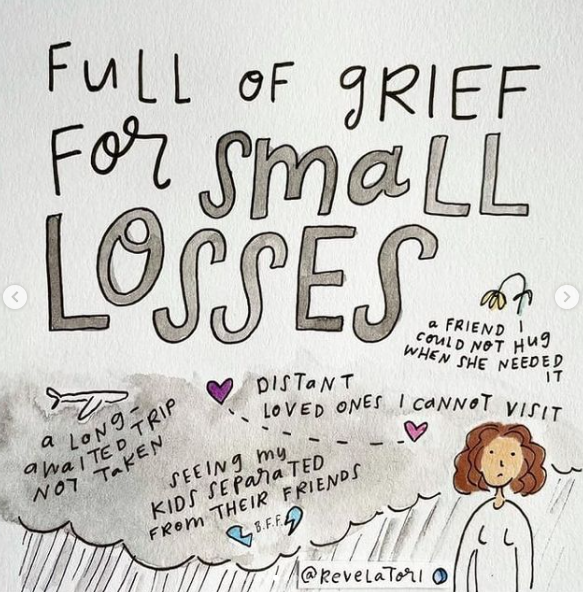 FULL OF gRIEF
FOR SmaLL
LOSSES
a FRIEND I
COULD NOT HUg
WHEN SHE NEEDED
IT
DISTaNT
LOVED ONES I CaNNOT VISIT
a LONg-
aWaITED TRIP
NOT TaKEN
SEEINg my
KIDS SEPaRaTED
FROM THEIR FRIENDS
B.F.F.
@REVELaTORI